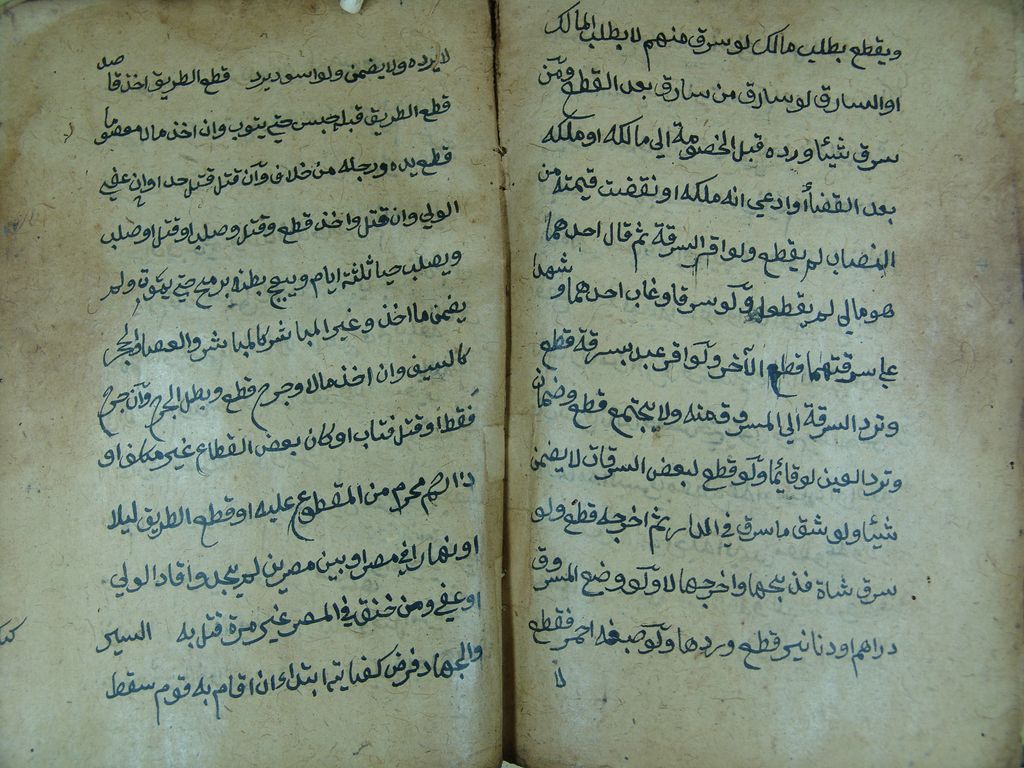 ويقطع بطلب مالك لو سرق منهم لا بطلب المالك
او السارق لو سارق من سارق بعد القطع ومن
سرق شيئا ورده قبل الخصومة الي مالكه او ملكه
بعد القضاء او ادعي انه ملكه او نقصت قيمته من
النصاب لم يقطع ولو اقر السرقة ثم قال احدهما
هو مالي لم يقطعا ولو سرقا وغاب احدهما وشهدا
علي سرقتهما قطع الآخر ولو اقر عبد بسرقة قطع
وترد السرقة الي المسروق منه ولا يجتمع قطع وضمان
وترد العين لو قائما ولو قطع لبعض السرقات لا يضمن
شيئا ولو شق ما سرق في الدار ثم اخرجه قطع ولو
سرق شاة فذبحها واخرجها لا ولو وضع المسروق
دراهم او دنانير قطع وردها ولو صبغه احمر فقطع
لا
لا يرده ولا يضمن ولو اسود يرد قطع الطريق اخذ قاصد
قطع الطريق قبله حبس حتي يتوب وان اخذ مالا معصوما
قطع يده ورجله من خلاف وان قتل قتل حدا وان عفي
الولي وان قتل واخذ قطع وقتل وصلب او قتل او صلب
ويصلب حيا ثلثة ايام ويبعج بطنه برمح حتي يموت ولم
يضمن ما اخذ وغير المباشر كالمباشر والعصا والحجر
كالسيف وان اخذ مالا وجرح قطع وبطل الجرح وان جرح
فقط او قتل فتاب او كان بعض القطاع غير مكلف او
ذا رحم محرم من المقطوع عليه او قطع الطريق ليلا
او نهارا في مصر او بين مصرين لم يحد واقاد الولي
او عفي ومن خنق في المصر غير مرة قتل به السير
والجهاد فرض كفاية ابتداء ان اقام به قوم سقط